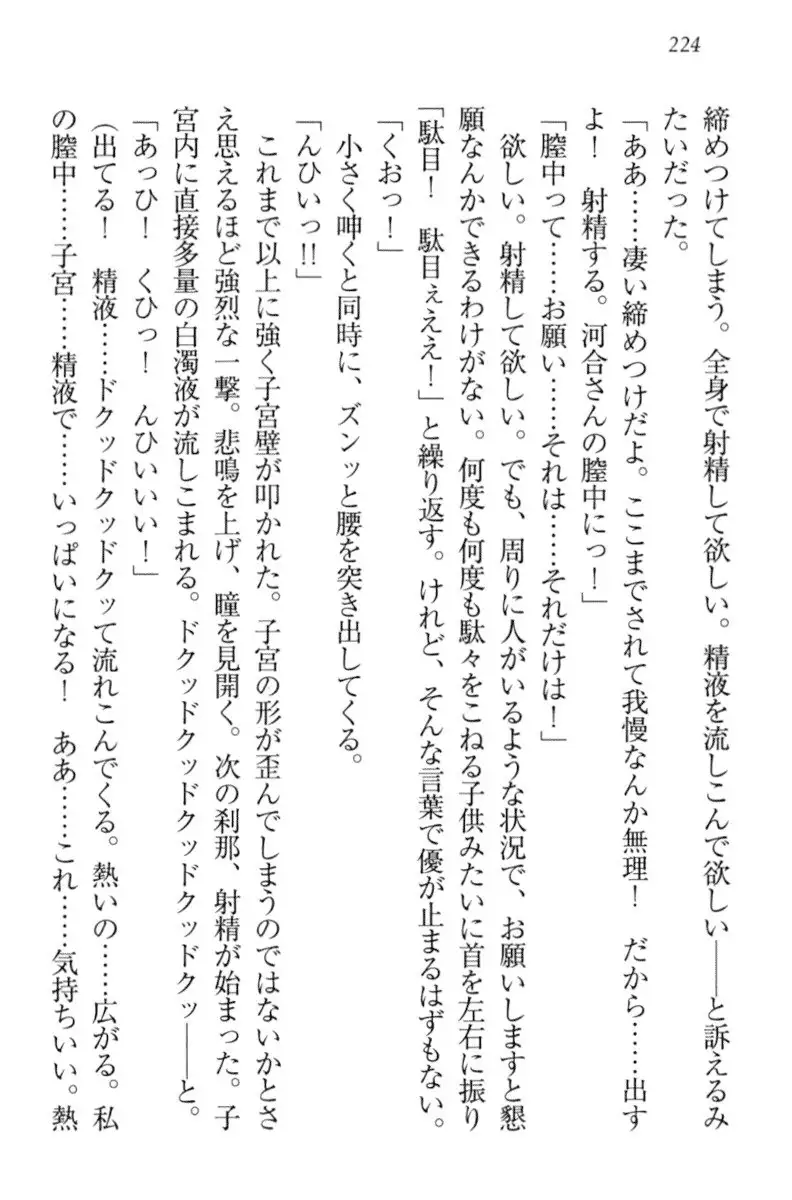 224
締めつけてしまう。全身で射精して欲しい。精液を流しこんで欲しい――と訴えるみ
たいだった。
「ああ……凄い締めつけだよ。ここまでされて我慢なんか無理！　だから……出す
よ！　射精する。河合さんの膣中にっ！」
「膣中って……お願い……それは……それだけは！」
　欲しい。射精して欲しい。でも、周りに人がいるような状況で、お願いしますと懇
願なんかできるわけがない。何度も何度も駄々をこねる子供みたいに首を左右に振り
「駄目！　駄目ぇええ！」と繰り返す。けれど、そんな言葉で優が止まるはずもない。
「くおっ！」
　小さく呻くと同時に、ズンッと腰を突き出してくる。
「んひいっ!!」
　これまで以上に強く子宮壁が叩かれた。子宮の形が歪んでしまうのではないかとさ
え思えるほど強烈な一撃。悲鳴を上げ、瞳を見開く。次の刹那、射精が始まった。子
宮内に直接多量の白濁液が流しこまれる。ドクッドクッドクッドクッ――と。
「あっひ！　くひっ！　んひいいい！」
（出てる！　精液……ドクッドクッドクッて流れこんでくる。熱いの……広がる。私
の膣中……子宮……精液で……いっぱいになる！　ああ……これ……気持ちいい。熱